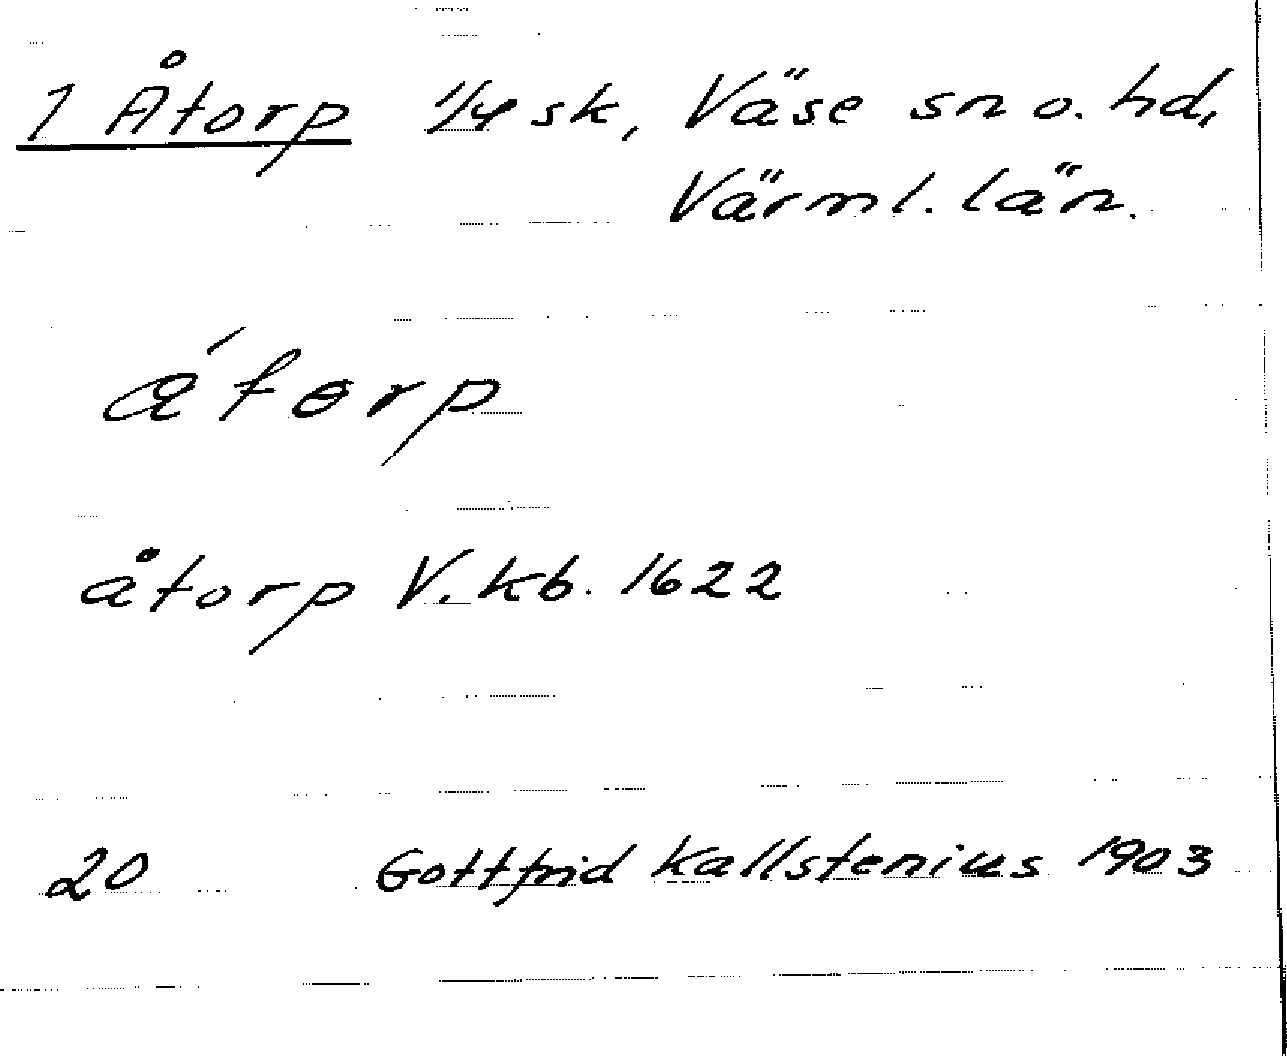 1 Åtorp 1/4 sk, Väse sn o. hd,
Värml. län.
átɵrp
åtorp V. kb. 1622
20 Gottfrid Kallstenius 1903